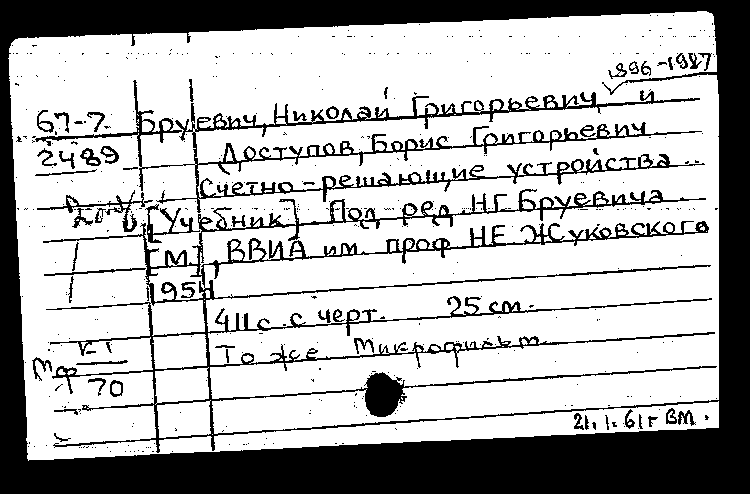 1896-1987
67-7 Бруевич, Николай Григорьевич и
2489 Доступов, Борис Григорьевич
Счетно-решающие устройства..
[Учебник]. Под ред. Н.Г.Бруевича.
[М], ВВИА им. проф Н Е Жуковского
1954
411с. с черт. 25 см.
То же. Микрофильм.
Мф К1
70
21.1.61г ВМ.